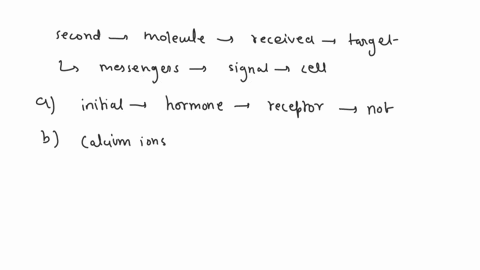 second → molecule → received → target-
↳ messengers → signal → cell
a) initial → hormone → receptor → not
b) Calcium ions